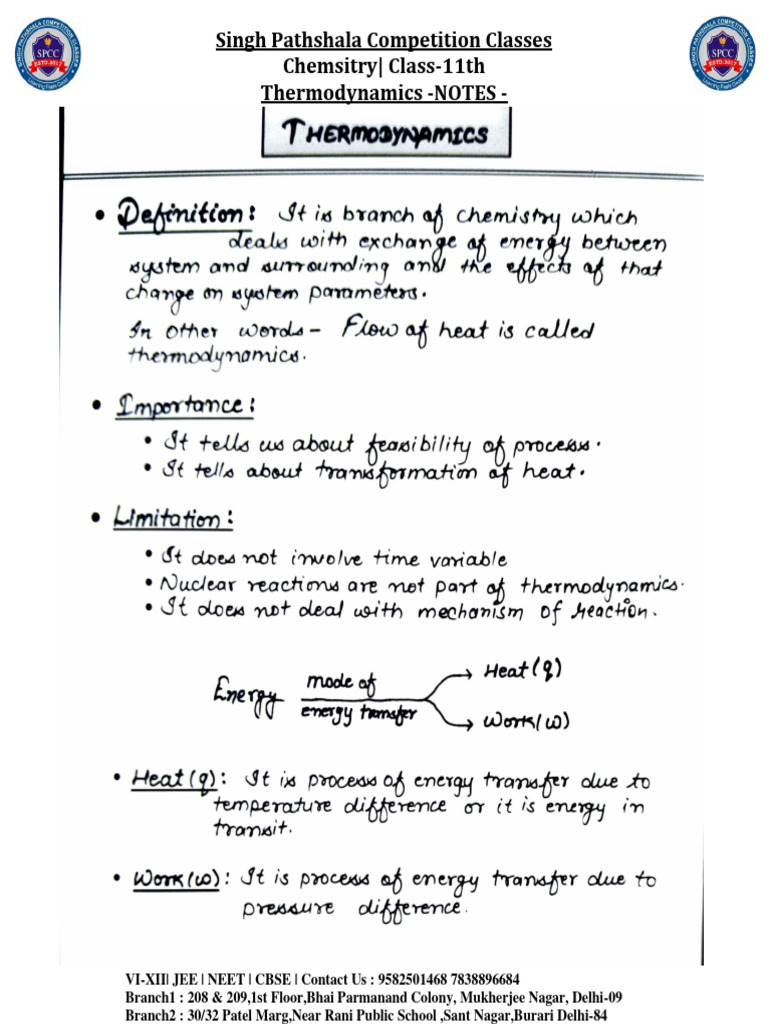 Singh Pathshala Competition Classes
Chemsitry| Class-11th
Thermodynamics -NOTES -
SINGH PATHSHALA COMPETITION CLASSES
SPCC
ESTD.2017
SINGH PATHSHALA COMPETITION CLASSES
SPCC
ESTD.2017
THERMODYNAMICS
• Definition: It is branch of chemistry which
deals with exchange of energy between
system and surrounding and the effects of that
change on system parameters.
In other words - Flow of heat is called
thermodynamics.
• Importance:
• It tells us about feasibility of process.
• It tells about transformation of heat.
• Limitation:
• It does not involve time variable
• Nuclear reactions are not part of thermodynamics.
• It does not deal with mechanism of reaction.
Energy mode of energy transfer
Heat (q)
Work (w)
• Heat (q): It is process of energy transfer due to
temperature difference or it is energy in
transit.
• Work (w): It is process of energy transfer due to
pressure difference.
VI-XII| JEE | NEET | CBSE | Contact Us : 9582501468 7838896684
Branch1 : 208 & 209,1st Floor,Bhai Parmanand Colony, Mukherjee Nagar, Delhi-09
Branch2 : 30/32 Patel Marg,Near Rani Public School ,Sant Nagar,Burari Delhi-84